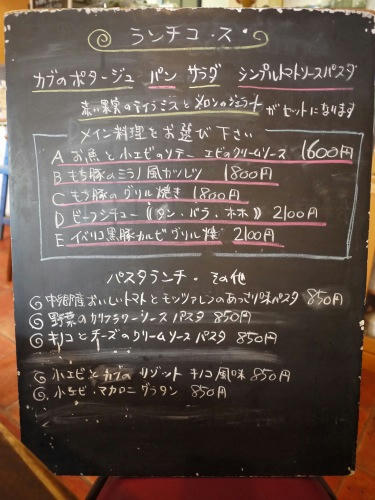 ランチコース
カブのポタージュ パン サラダ シンプルトマトソースパスタ
赤い果実のティラミスとメロンのジェラートがセットになります
メイン料理をお選び下さい
A お魚と小エビのソテー エビのクリームソース 1600円
B もち豚のミラノ風カツレツ 1800円
C もち豚のグリル焼き 1800円
D ビーフシチュー《タン・バラ・ホホ》 2100円
E イベリコ黒豚カルビグリル焼 2100円
パスタランチ・その他
中郷産おいしいトマトとモッツァレラのあっさり味パスタ 850円
野菜のカリフラワーソース パスタ 850円
キノコとチーズのクリームソース パスタ 850円
小エビとカブのリゾット キノコ風味 850円
小エビ・マカロニグラタン 850円